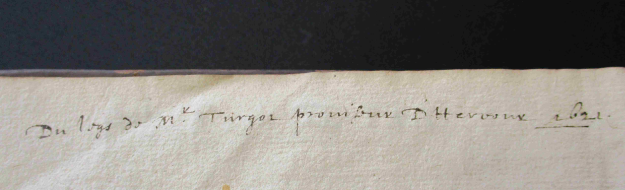 Du legs de Mr Turgot prouiseur D'Harcour 1621.